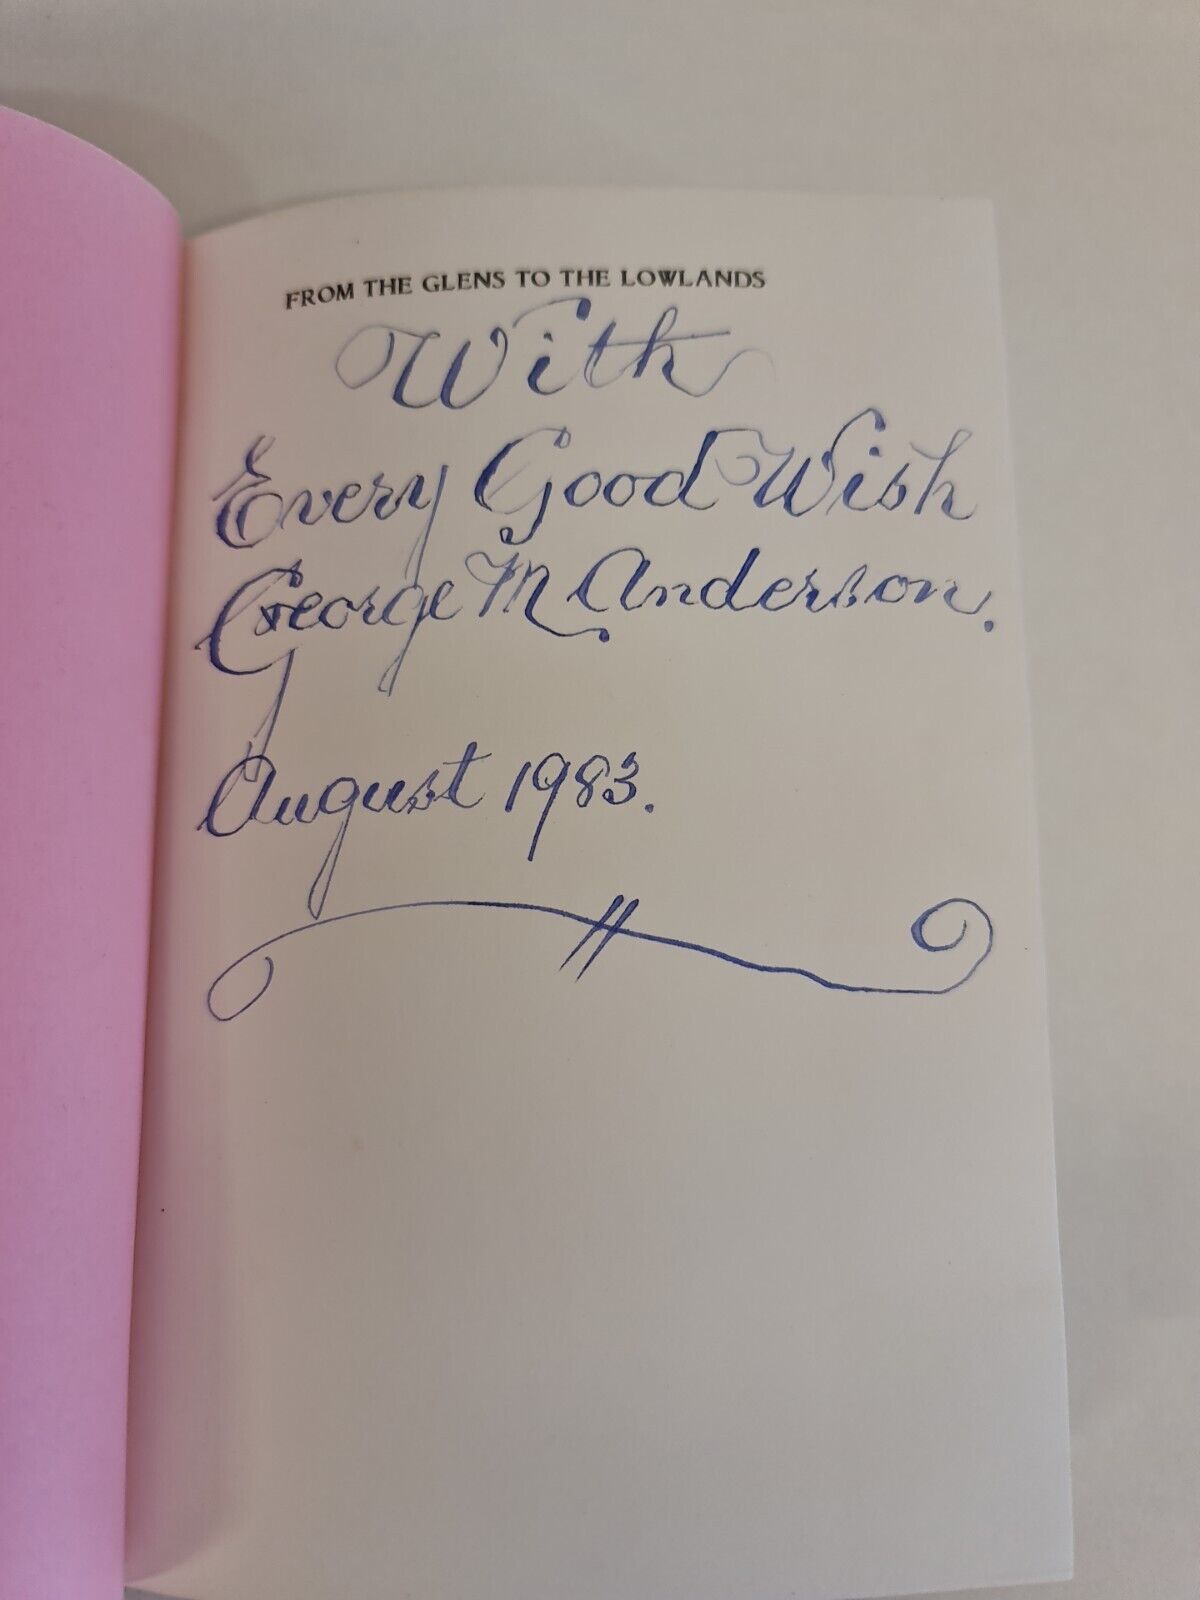 FROM THE GLENS TO THE LOWLANDS
With
Every Good Wish
George M Anderson.
August 1983.